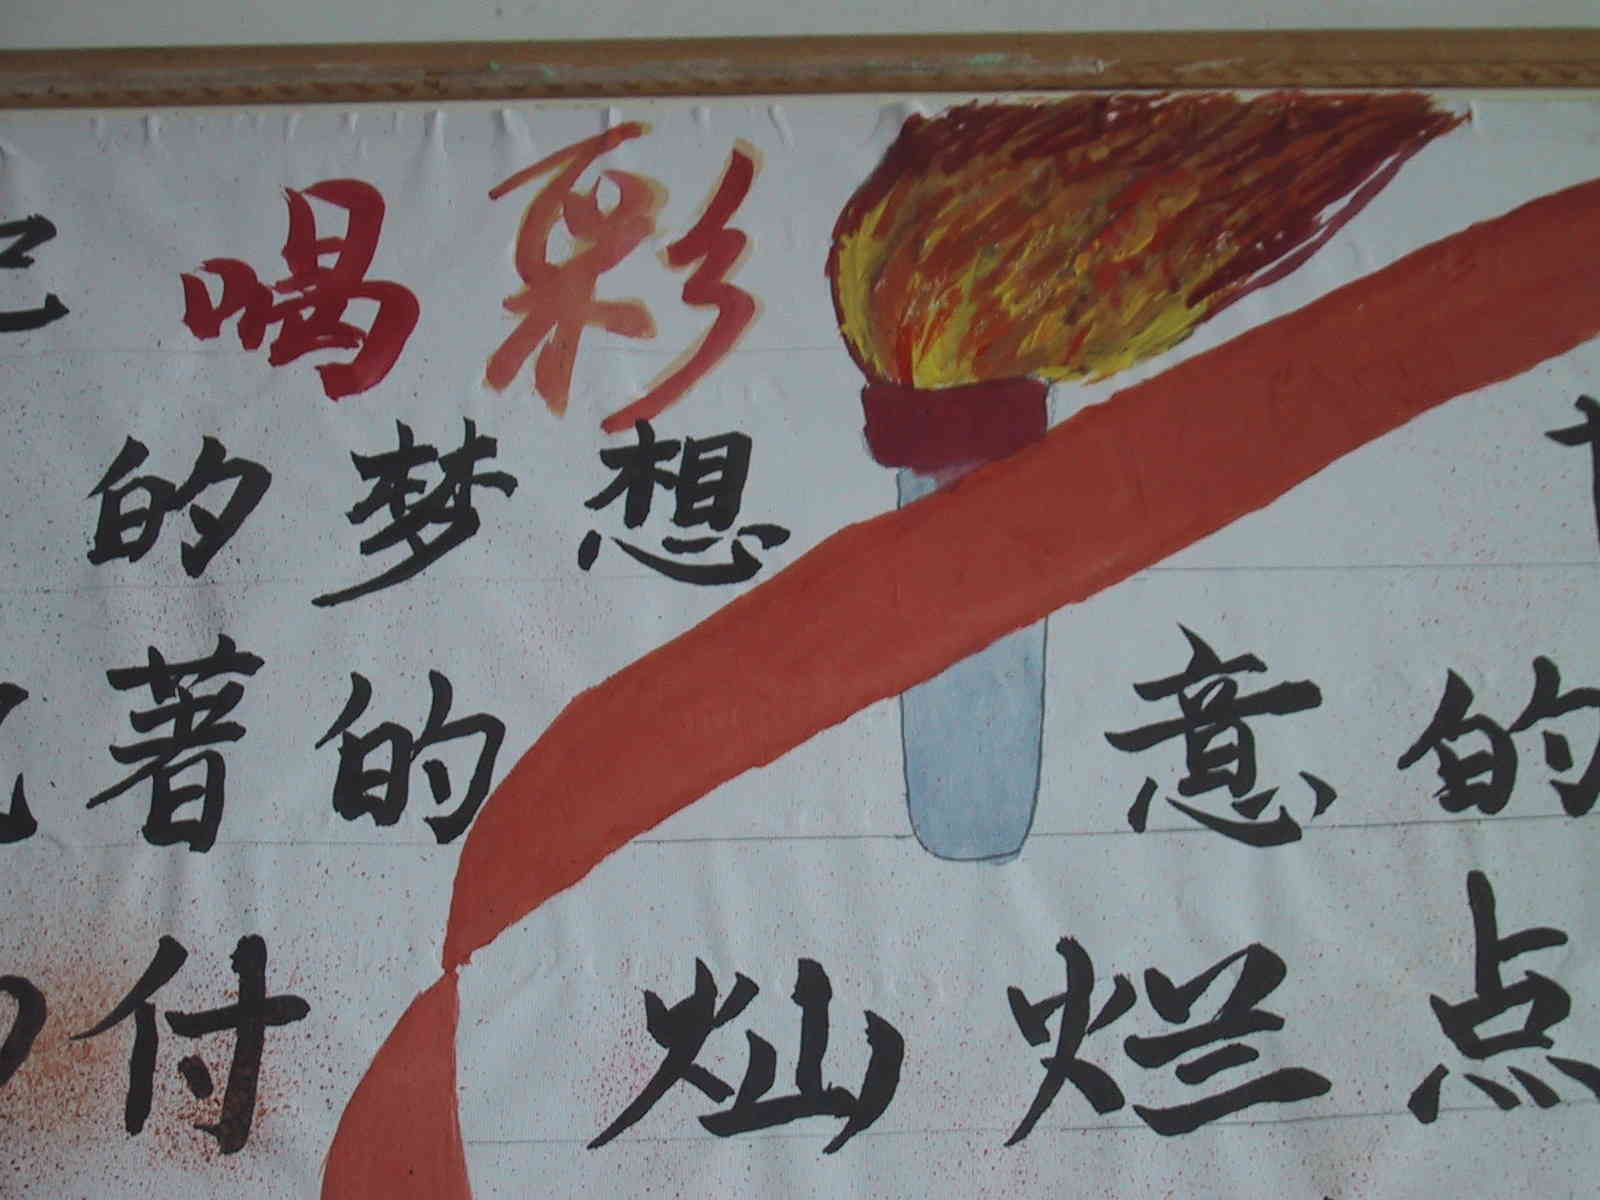 喝彩
的梦想
著的 意的
付 灿烂点